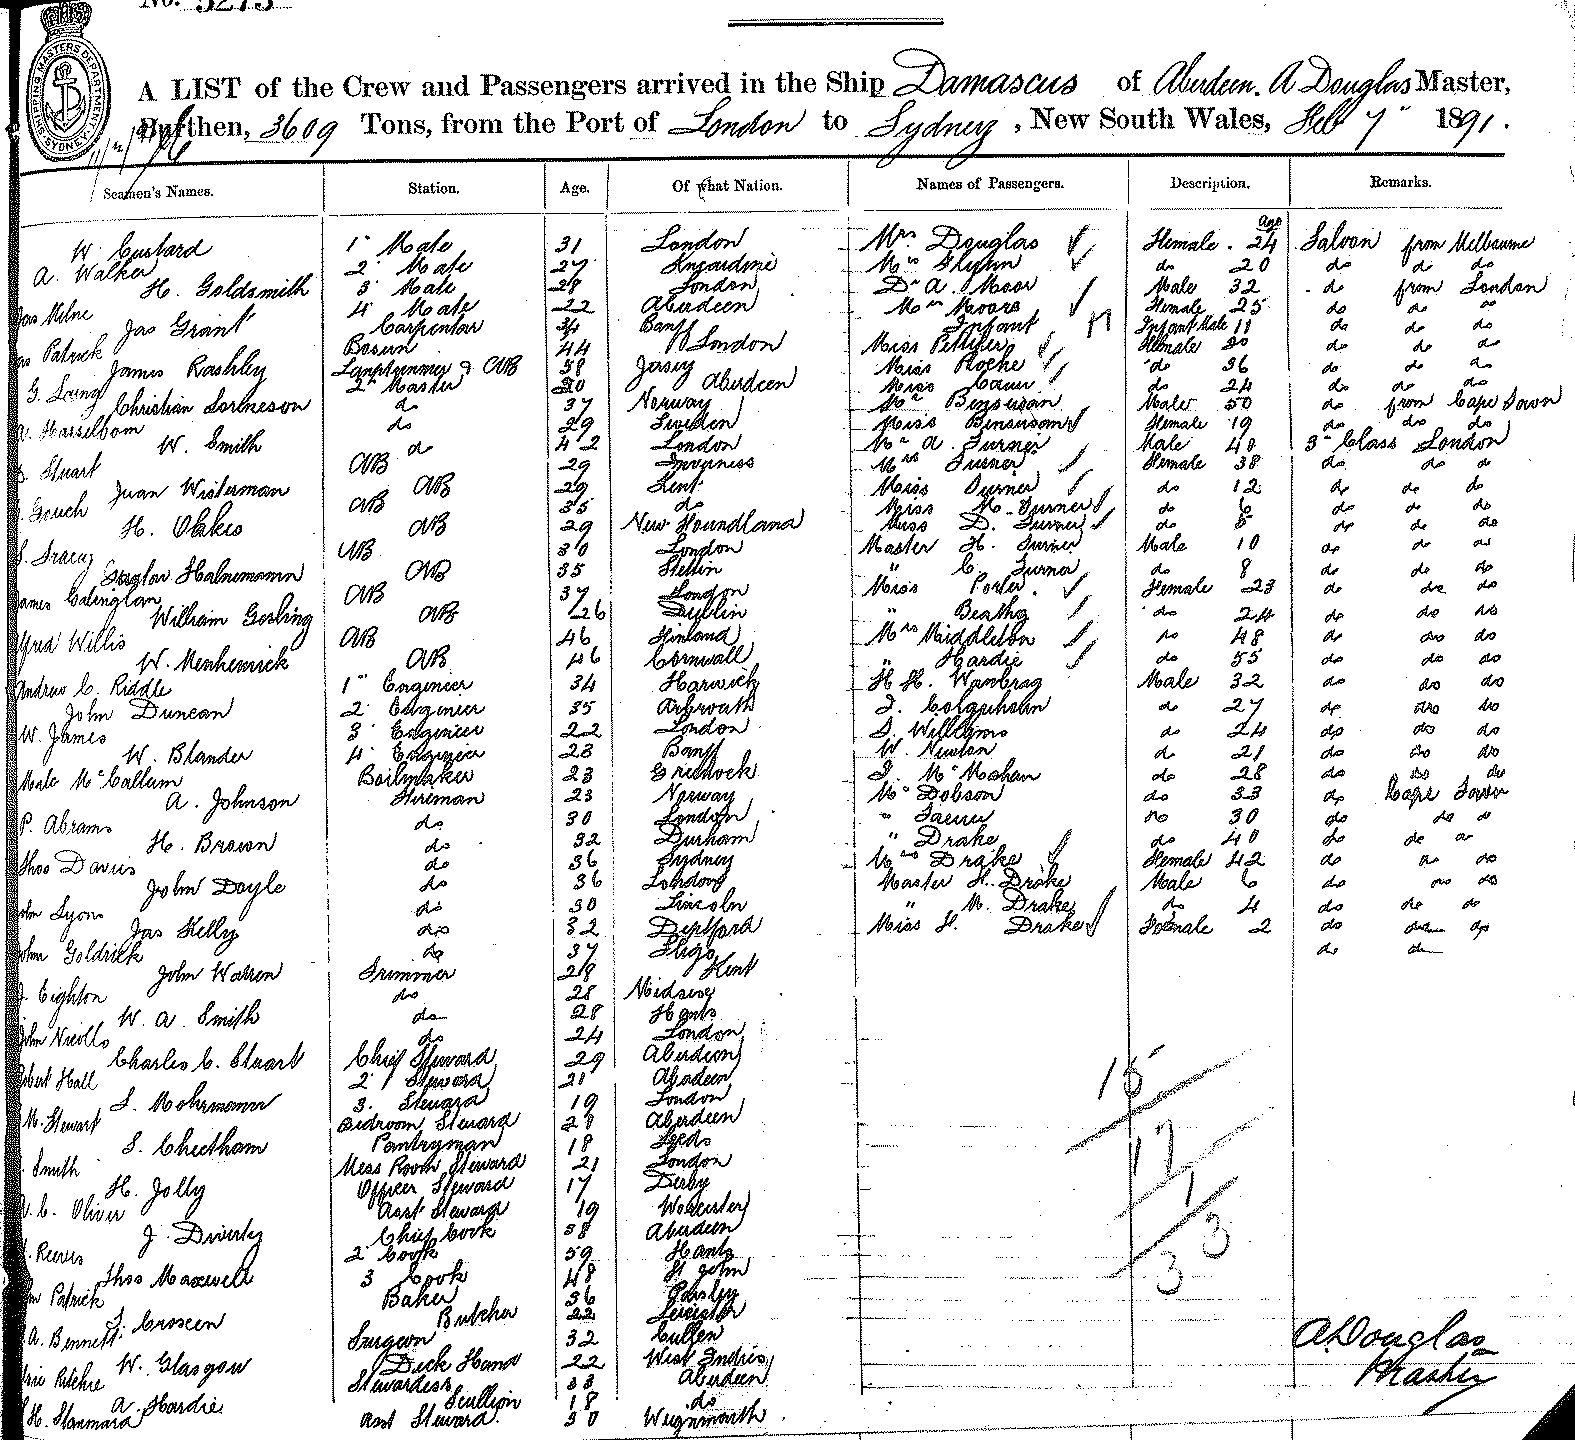 No. 5273
SHIPPING MASTERS DEPARTMENT SYDNEY
A LIST of the Crew and Passengers arrived in the Ship Damascus of Aberdeen. A Douglas Master,
Burthen, 3609 Tons, from the Port of London to Sydney, New South Wales, Feb 7" 1891.
Seamen's Names. Station. Age. Of what Nation. Names of Passengers. Description. Remarks.
Age
W. Custard 1" Mate 31 London Mrs Douglas Female. 24 Saloon from Melbourne
A. Walker 2 Mate 27 Mrs do 20 do do do
H. Goldsmith 3 Mate 28 London Dr A. Moor Male 32 do from London
Jas Milne 4 Mate 22 Aberdeen Mrs Female 25 do do "
Jas Grant Carpenter 34 Banff Infant Infant Male 11 do do do
Patrick Bosun 44 London Miss Female do do do
James Rashley Lamptrimmer & AB 38 Jersey Miss Roche do 36 do do do
G. Laing 2" Master Aberdeen Miss do 24 do do do
Christian do 37 Norway Mr Binsusan Male 50 do from Cape Town
Hasselbom do 29 Sweden Miss Binsusan Female 19 do do do
W. Smith do 42 London Mr A. Turner Male 48 3" Class London
Stuart AB 29 Inverness Mrs Turner Female 38 do do do
Juan Wisterman AB 29 Kent Miss Turner do 12 do do do
Gouch AB 35 do Miss H. Turner do 6 do do do
H. Oakes AB 29 New Foundland Miss D. Turner do do do do
Tracey AB 30 London Master H. Turner Male 10 do do do
Halnemann AB 35 Stettin " C. Turner do 8 do do do
James AB 37 London Miss Porter. Female 23 do do do
William Gosling AB 26 Dublin " do 24 do do do
Willis AB 46 Finland Mrs Middleton do 48 do do do
W. Menhenrick AB 46 Cornwall " Hardie do 55 do do do
Andrew C. Riddle 1" Engineer 34 Harwich H. H. Male 32 do do do
John Duncan 2 Engineer 35 Arbroath J. Colquhoun do 27 do do do
W. James 3 Engineer 22 London J. Williams do 24 do do do
W. Blander 4 Engineer 28 Banff W. Newton do 21 do do do
Malc McCallum Boilmaker 23 Greenock J. McMahan do 28 do do do
A. Johnson Fireman 23 Norway Mr Dobson do 33 do Cape Town
P. Abrams do 30 London " do 30 do do do
H. Brown do 32 Durham " Drake do 40 do do
Thos Davies do 36 Sydney Mrs Drake Female 42 do do do
John Doyle do 36 London Master H. Drake Male 6 do do do
John Lyons do 30 Lincoln " M. Drake do 4 do do do
Jas Kelly do 32 Deptford Miss Drake Female 2 do do do
John Goldrick do 37 Sligo do do
John Warren Trimmer 28 Kent
J. Eighton do 28
W. A. Smith do 28 Hants
John Nicolls do 24 London
Charles C. Stuart Chief Steward 29 Aberdeen
Robert Hall 2 Steward 21 Aberdeen
Mohrmann 3. Steward 19 London
M. Stewart Bedroom Steward 28 Aberdeen
Cheetham Pantryman 18 Leeds
Smith Mess Room Steward 21 London
H. Jolly Officer Steward 17 Derby
C. Oliver Asst Steward 19 Worcester
J. Chief Cook 38 Aberdeen
Reeves 2 Cook 59 Hants
Thos Maxwell 3 Cook 48 St John
Patrick Baker 36 Paisley
Butcher 22 Leicester
A. Bennett Surgeon 32 Cullen
W. Glasgow Deck Hand 22 West Indies
Ritchie Stewardess 33 Aberdeen
A. Hardie Scullion 18 do
H. Stanmard asst Steward. 30
15
17
1
3
3
A. Douglas
Master